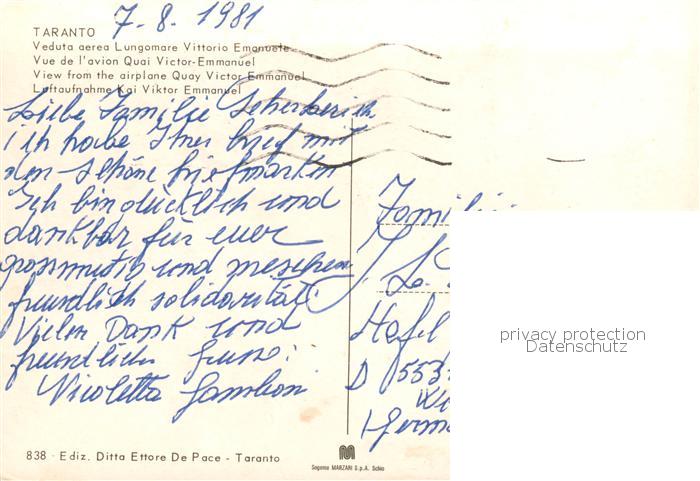 7-8-1981
TARANTO
Veduta aerea Lungomare Vittorio Emanuele
Vue de l'avion Quai Victor-Emmanuel
View from the airplane Quay Victor Emmanuel
Luftaufnahme Kai Viktor Emmanuel
Liebe Familie
ich habe Ihrer brief mit
den schöne briefmarken
Ich bin glücklich und
dankbar für euer
und
freundlich solidarität.
Vielen Dank und
freundlich
Nicoletta
Familie
D 553
privacy protection
Datenschutz
838 - Ediz. Ditta Ettore De Pace - Taranto
Sagoma MARZARI S.p.A. Schio